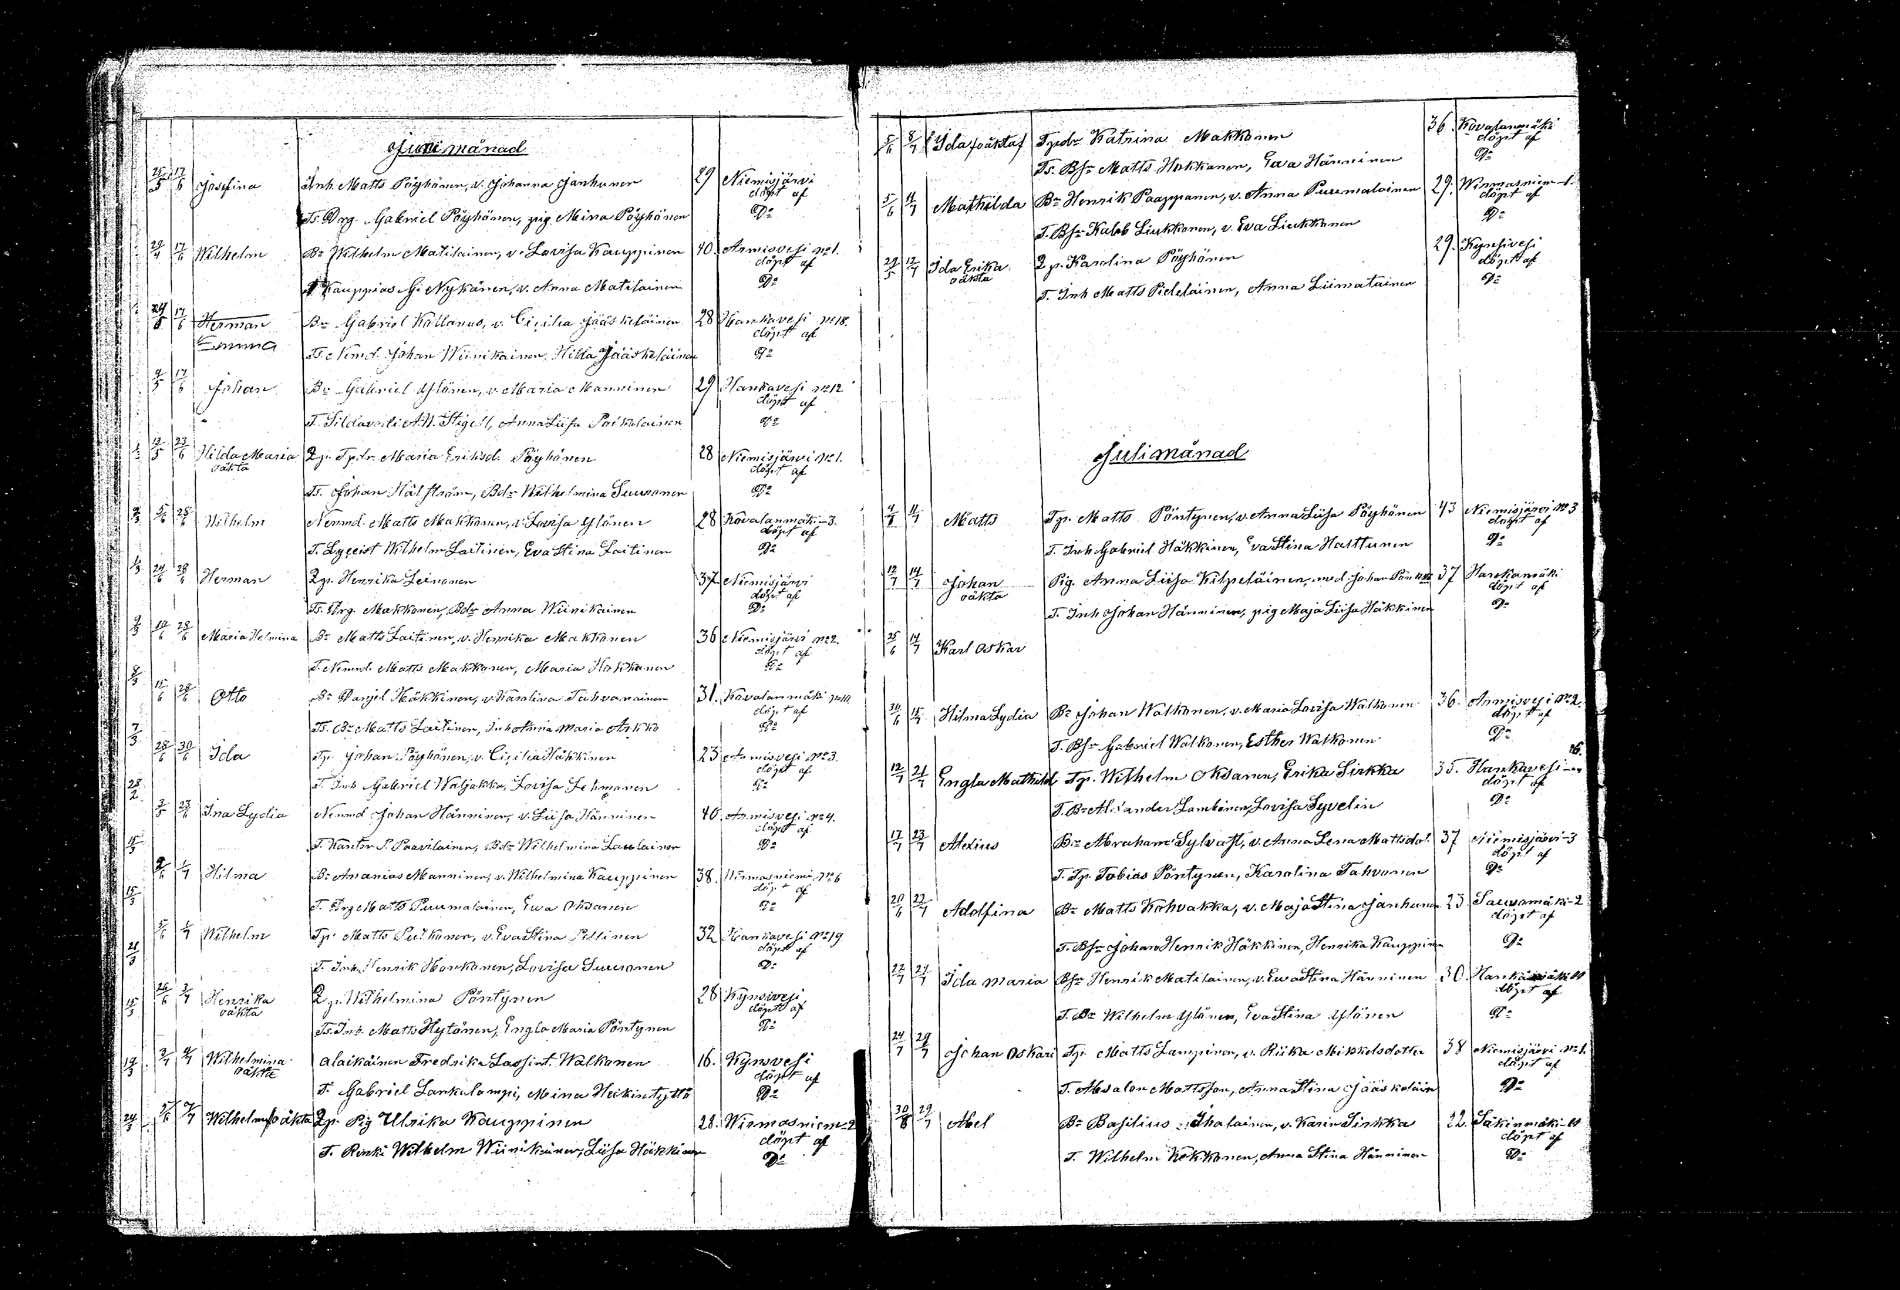 Juni månad
25/5 17/6 Josefina Inh. Matts Pöyhönen, v. Johanna Janhunen 29 Niemisjärvi
döpt af
Ts. Drg. Gabriel Pöyhönen, pig. Mina Pöyhönen D:o
29/4 17/6 Wilhelm Bd Wilhelm Matilainen, v. Lovisa Kauppinen 40. Armisvesi No 1.
döpt af
Kauppias G. Nykänen, v. Anna Matilainen D:o
17/6 Herman Bd Gabriel Kallanus, v. Cicilia Jääskeläinen 28 Hankavesi No 18.
Emma döpt af
Ts. Nimd. Johan Wiinikainen, Hilda Jääskeläinen D:o
17/6 Johan Bd Gabriel Ylönen, v. Maria Manninen 29 Hankavesi No 12
döpt af
T. A.W. Stigell, Anna Liisa Poikolainen D:o
12/5 23/6 Hilda Maria 2 p. Tpdr. Maria Eriksd. Pöyhönen 28 Niemisjärvi No 1.
oäkta döpt af
Ts. Johan Hälström, Bdr Wilhelmina Suuronen D:o
28/6 Wilhelm Nimd. Matts Makkonen, v. Lovisa Ylönen 28 Kovalanmäki-3.
döpt af
T. Lyceist Wilhelm Laitinen, Eva Stina Laitinen D:o
24/6 28/6 Herman 2 p. Henrika Leinonen 37 Niemisjärvi
döpt af
Ts. Drg. Makkonen, Bdr Anna Wiinikainen D:o
10/6 28/6 Maria Helmina Bd Matts Laitinen, v. Henrika Makkonen 36 Niemisjärvi No 2.
döpt af
T. Nimd. Matts Makkonen, Maria Hokkanen D:o
28/6 Otto Bd Daniel Häkkinen, v. Karolina Tahvanainen 31. Kovalanmäki
döpt af
Ts. Bd Matts Laitinen, Inh Anna Maria Arkko D:o
28/6 30/6 Ida Tp. Johan Pöyhönen, v. Cicilia Häkkinen 23 Armisvesi No 3.
döpt af
T. Inh Gabriel Waljakka, Lovisa Lehmonen D:o
23/6 Ina Lydia Nimd Johan Hänninen, v. Liisa Hänninen 40. Armisvesi No 4.
döpt af
T. Kantor P. Paavilainen, Bdr Wilhelmina Laulainen D:o
1/7 Hilma Bd Ananias Manninen, v. Wilhelmina Kauppinen 38. Wirmasniemi No 6
döpt af
T. Drg Matts Puurmalainen, Eva Oksanen D:o
5/6 1/7 Wilhelm Tp. Matts Pulkonen, v. Eva Stina Pellinen 32 Hankavesi No 19
döpt af
T. Inh. Henrik Honkonen, Lovisa Suuronen D:o
26/6 2/7 Henrika 2 p. Wilhelmina Pöntynen 28 Kynsivesi
oäkta döpt af
Ts. Inh. Matts Hytönen, Engla Maria Pöntynen D:o
2/7 Wilhelmina alaikäinen Fredrika Lassint. Walkonen 16. Kynsivesi
oäkta döpt af
T. Gabriel Lankalampi, Mina Heikintyttö D:o
5/6 7/7 Wilhelm oäkta 2 p. Pig Ulrika Kauppinen 28. Wirmasniem-2
döpt af
T. Renki Wilhelm Wiinikainen, Liisa Häkkinen D:o
5/6 8/7 Ida (oäkta) Tpdr Katrina Makkonen 36. Kovalanmäki
döpt af
Ts. Bsr Matts Hokkanen, Eva Hänninen D:o
5/6 11/7 Mathilda Bd Henrik Paappanen, v. Anna Puurmalainen 29. Wirmasniem-1.
döpt af
T. Bsr Kaleb Liukkonen, v. Eva Liukkonen D:o
29/5 12/7 Ida Erika 2 p. Karolina Pöyhönen 29. Kynsivesi
oäkta döpt af
T. Inh Matts Pieteläinen, Anna Liimatainen D:o
Juli månad
11/7 Matts Tp. Matts Pöntynen, v. Anna Liisa Pöyhönen 43 Niemisjärvi No 3
döpt af
T. Inh Gabriel Häkkinen, Eva Stina Halttunen D:o
12/7 14/7 Johan Pig. Anna Liisa Kilpeläinen, med Johan 37 Hankamäki
oäkta döpt af
T. Inh Johan Hänninen, pig Maja Liisa Häkkinen D:o
25/6 14/7 Karl Oskar
30/6 15/7 Hilma Lydia Bd Johan Walkonen, v. Maria Lovisa Walkonen 36. Armisvesi No 2.
döpt af
T. Bsr Gabriel Walkonen, Esther Walkonen D:o
12/7 21/7 Engla Mathild Tp. Wilhelm Oksanen, Erika Sirkka 35. Hankavesi 16.
döpt af
T. Bd Alexander Lamberg, Lovisa Syvelin D:o
17/7 23/7 Alexius Bd Abraham Sylvast, v. Anna Lena Mattsdot. 37 Niemisjärvi-3
döpt af
T. Tp. Tobias Pöntynen, Karolina Tahvonen D:o
20/6 22/7 Adolfina Bd Matts Kahvakka, v. Maja Stina Janhunen 23 Sauvamäki-2
döpt af
T. Bsr Johan Henrik Häkkinen, Henrika Kauppinen D:o
22/7 27/7 Ida Maria Bsr Henrik Matilainen, v. Eva Stina Hänninen 30. Hankamäki
döpt af
T. Bd Wilhelm Ylönen, Eva Stina Ylönen D:o
24/7 29/7 Johan Oskari Tp. Matts Lampinen, v. Riika Mikkelsdotter 38 Niemisjärvi No 1.
döpt af
T. Absalon Mattsson, Anna Stina Jääskeläin D:o
29/7 Abel Bd Basilius Ihalainen, v. Karin Sirkka 22. Säkinmäki
döpt af
T. Wilhelm Kokkonen, Anna Stina Hänninen D:o